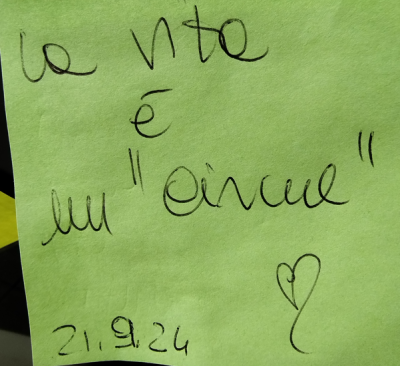 la vita
è
un
21.9.24